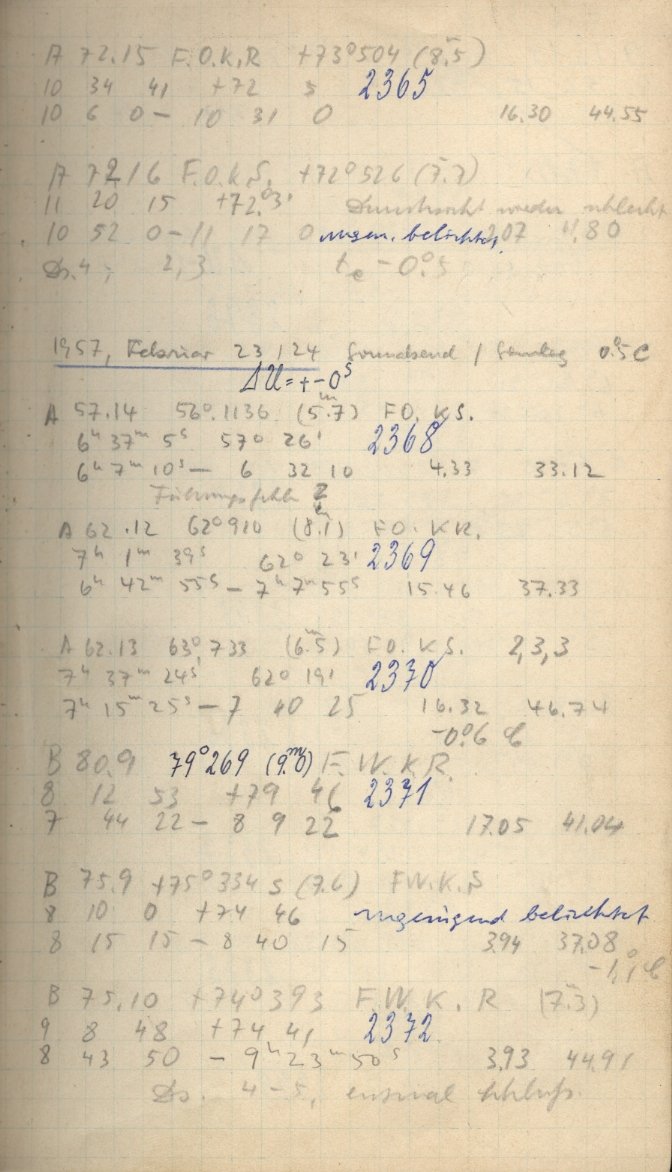 A 72.15 F.O.K.R +73°504 (8.5)
10 34 41 +72 5 2365
10 6 0 – 10 31 0 16.30 44.55
A 72.16 F.O.K.S. +72°526 (7.7)
11 20 15 +72° 3' Durchsicht wieder schlecht
10 52 0 – 11 17 0 ungen. belichtet,
Ds. 4, 2,3 te – 0°5
1957, Februar 23/24 Sonnabend / Sonntag 0°5 C
ΔU = +-0s
A 57.14 56°.1136 (5.m7) F.O. K.S.
6h 37m 5s 57° 26' 2368
6h 7m 10s – 6 32 10 4.33 33.12
Führungsfehler
A 62.12 62°910 (8.m1) F.O. K.R.
7h 1m 39s 62° 23' 2369
6h 42m 55s – 7h 7m 55s 15.46 37.33
A 62.13 63°.733 (6.m5) F.O. K.S. 2,3,3
7h 37m 24s 62° 19' 2370
7h 15m 25s – 7 40 25 16.32 46.74
-0°.6 C
B 80.9 79°269 (9.m0) F.W.K.R.
8 12 53 +79 46 2371
7 44 22 – 8 9 22 17.05 41.04
B 75.9 +75°334 s (7.6) F.W.K.S
8 10 0 +74 46 ungenügend belichtet
8 15 15 – 8 40 15 3.94 37.08
-1,1° C
B 75.10 +74°393 F.W.K.R (7.3)
9 8 48 +74 41 2372
8 43 50 – 9h 23m 50s 3.93 44.91
Ds. 4–5, einmal